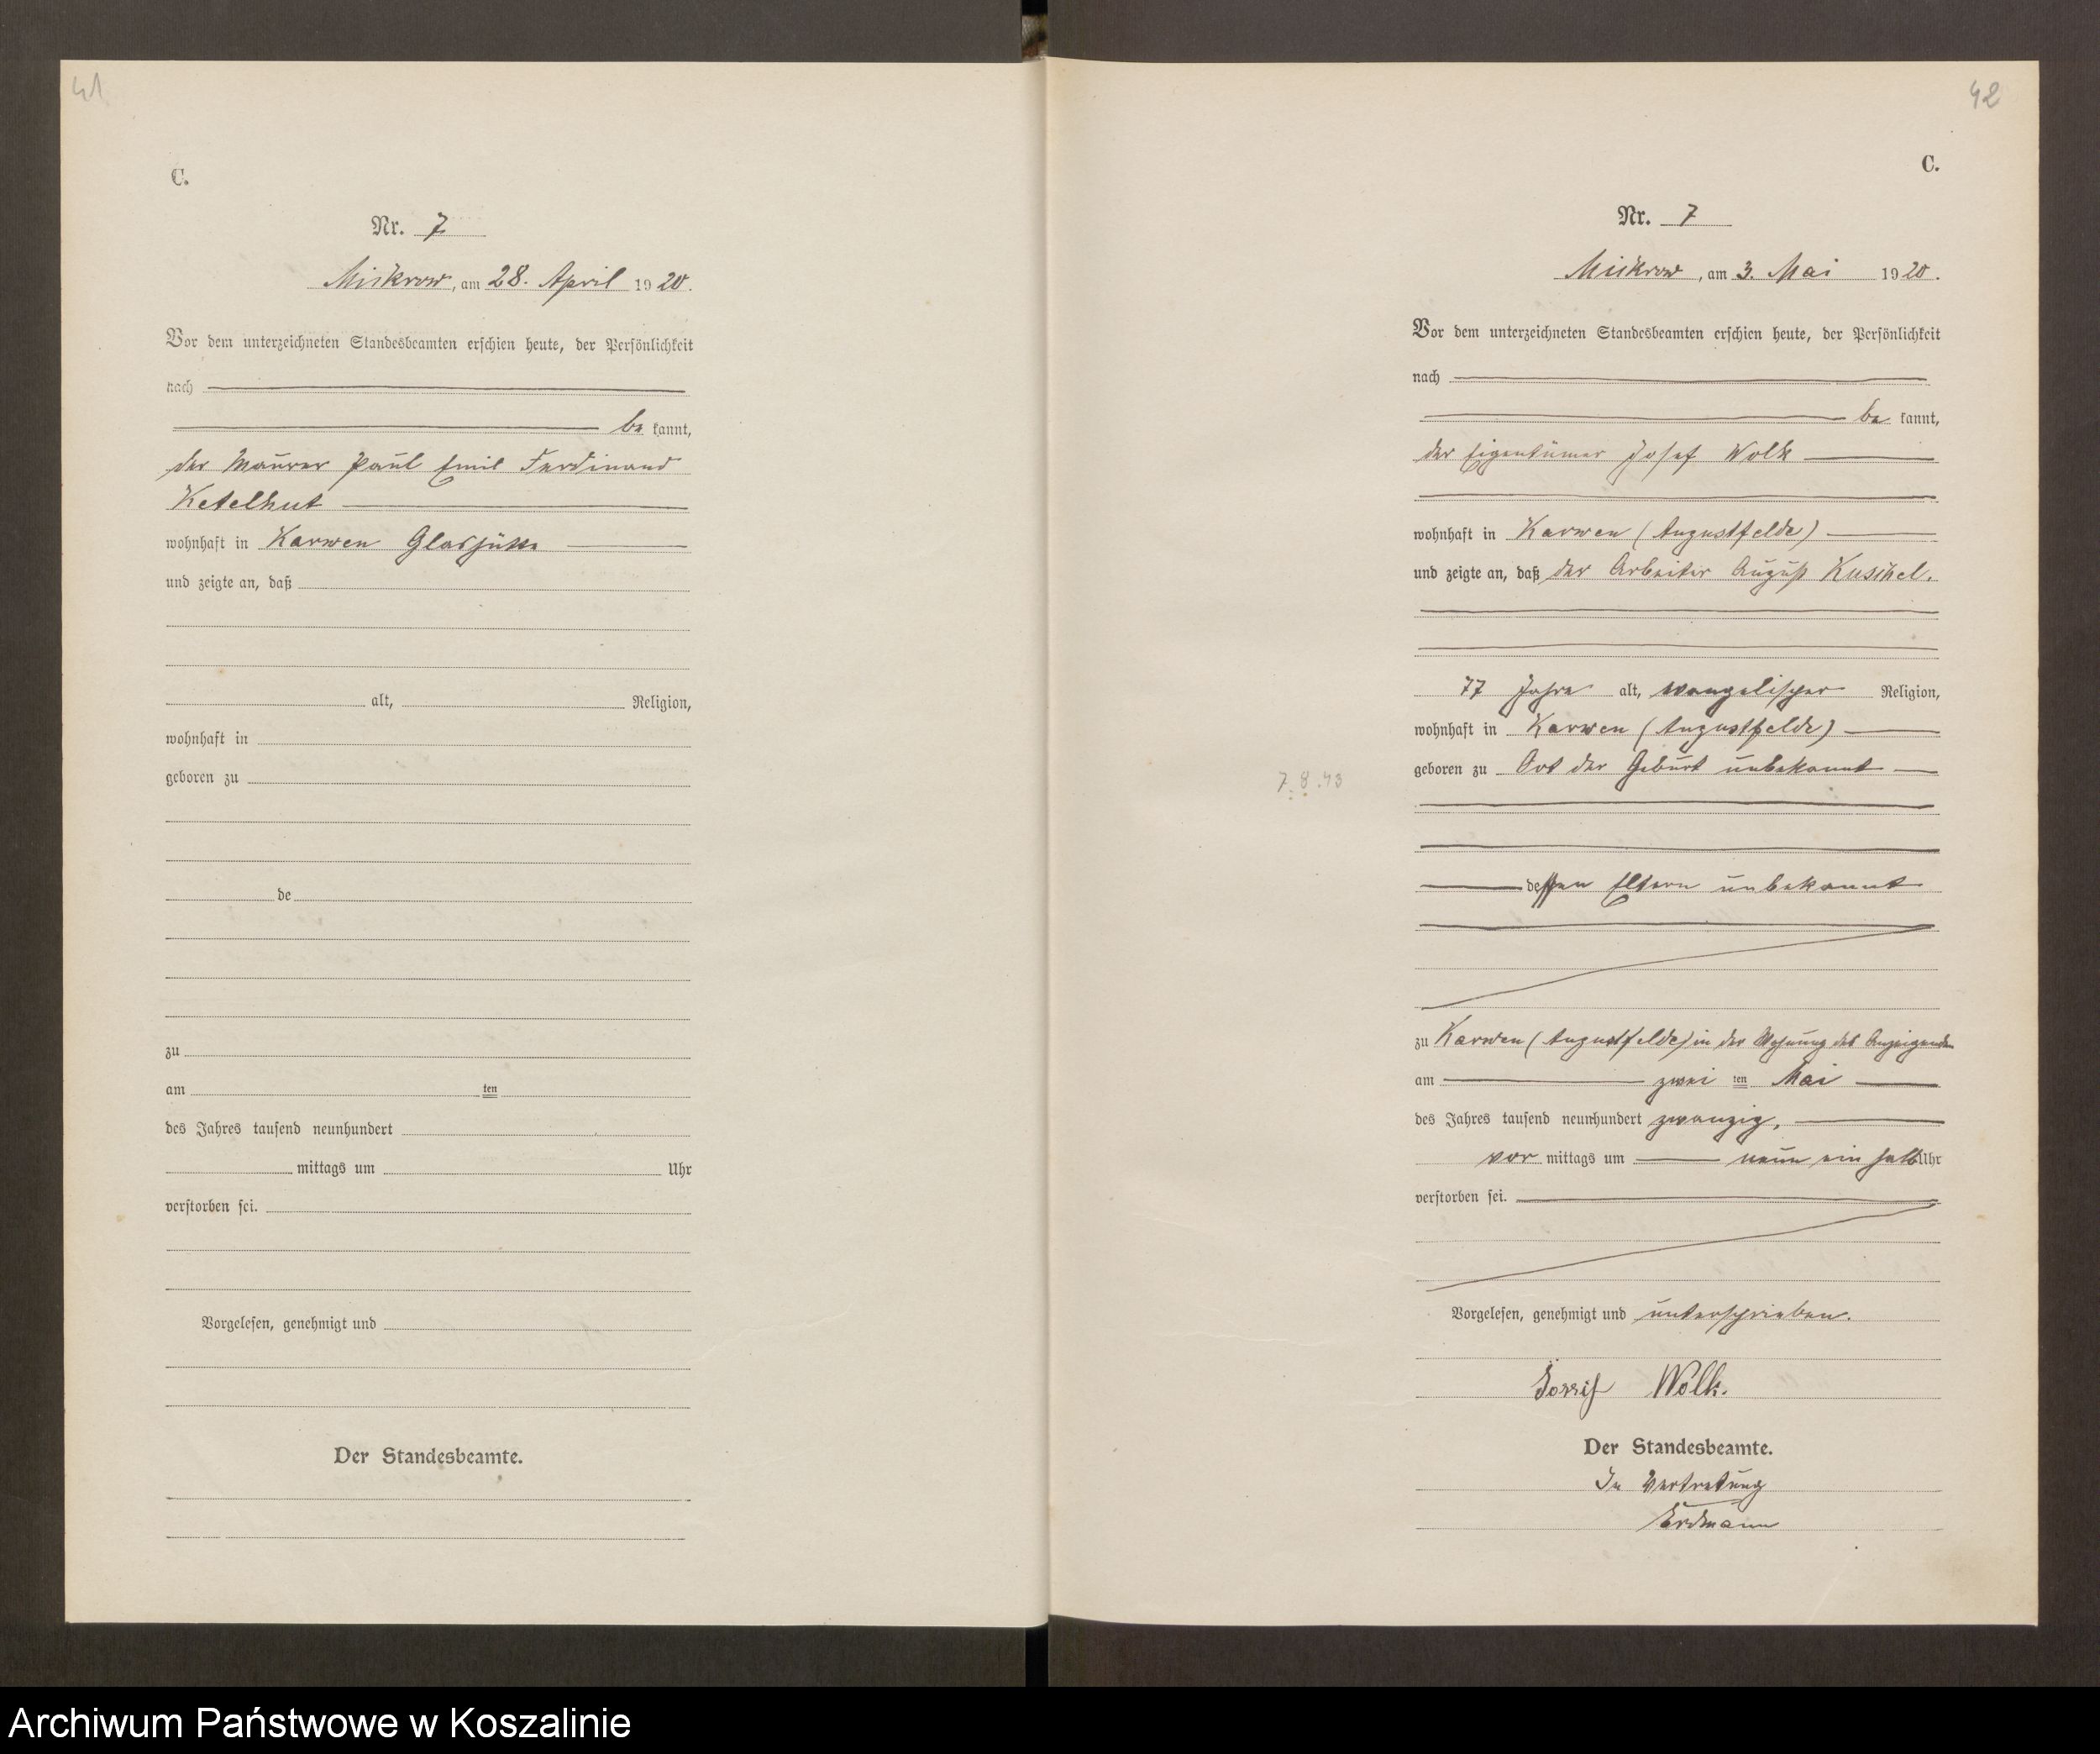 41
C.
Nr. 7
Miskrow, am 28. April 1920.
Vor dem unterzeichneten Standesbeamten erschien heute, der Persönlichkeit
nach
be kannt,
der Maurer Paul Emil Ferdinand
Ketelhut
wohnhaft in Karwen Glashütte
und zeigte an, daß
alt, Religion,
wohnhaft in
geboren zu
de
zu
am ten
des Jahres tausend neunhundert
mittags um Uhr
verstorben sei.
Vorgelesen, genehmigt und
Der Standesbeamte.
42
C.
Nr. 7
Miskrow, am 3. Mai 1920.
Vor dem unterzeichneten Standesbeamten erschien heute, der Persönlichkeit
nach
be kannt,
der Eigentümer Josef Wolk
wohnhaft in Karwen (Augustfelde)
und zeigte an, daß der Arbeiter August Kuschel.
77 Jahre alt, evangelischer Religion,
wohnhaft in Karwen (Augustfelde)
7.8.43
geboren zu Ort der Geburt unbekannt
dessen Eltern unbekannt
zu Karwen (Augustfelde) in der Wohnung des Anzeigenden
am zwei ten Mai
des Jahres tausend neunhundert zwanzig,
vor mittags um neun ein halb Uhr
verstorben sei.
Vorgelesen, genehmigt und unterschrieben.
Wolk.
Der Standesbeamte.
In Vertretung
Erdmann
Archiwum Państwowe w Koszalinie